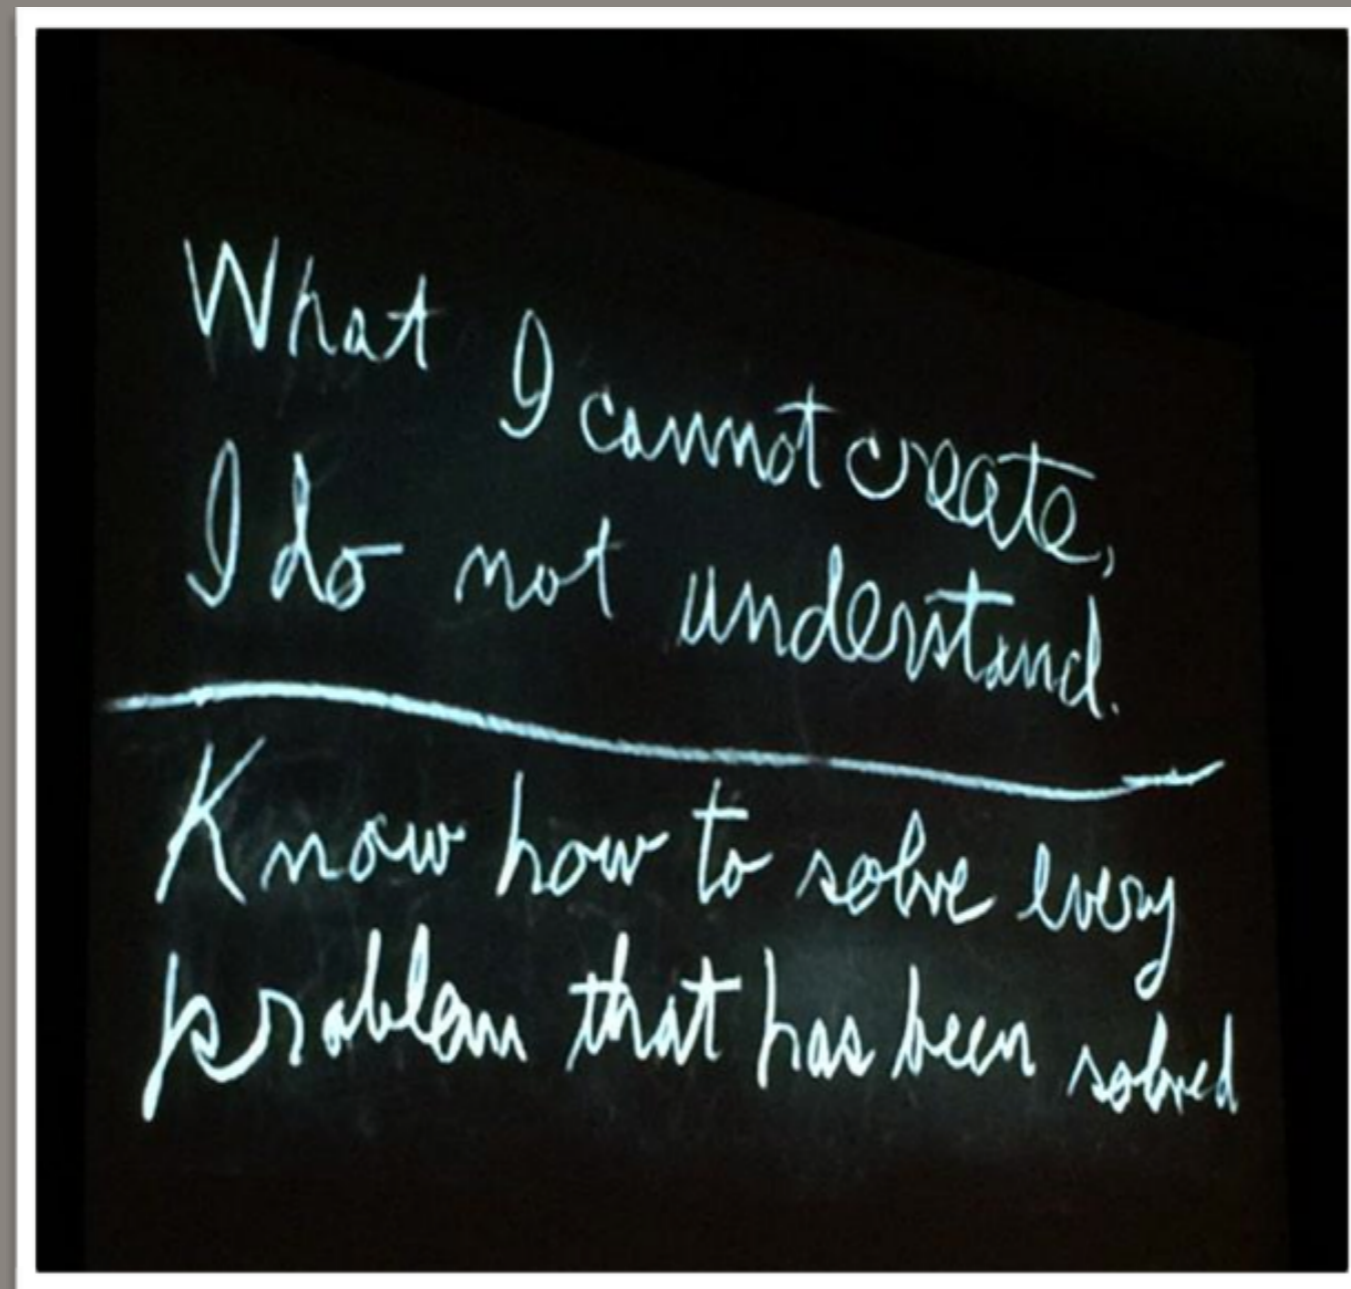 What I cannot create,
I do not understand.
Know how to solve every
problem that has been solved